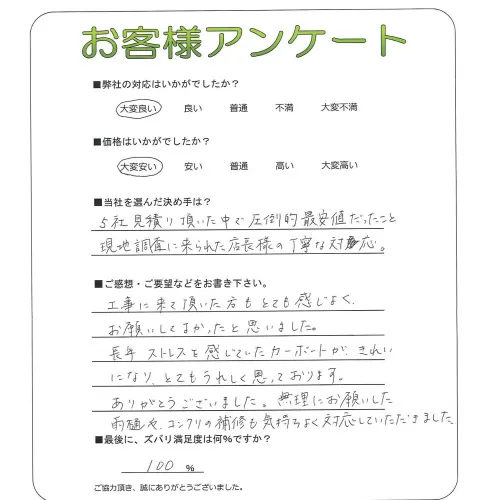 お客様アンケート
■弊社の対応はいかがでしたか？
大変良い 良い 普通 不満 大変不満
■価格はいかがでしたか？
大変安い 安い 普通 高い 大変高い
■当社を選んだ決め手は？
5社見積り頂いた中で圧倒的最安値だったこと
現地調査に来られた店長様の丁寧な対応。
■ご感想・ご要望などをお書き下さい。
工事に来て頂いた方もとても感じよく、
お願いしてよかったと思いました。
長年ストレスを感じていたカーポートが、きれい
になり、とてもうれしく思っております。
ありがとうございました。無理にお願いした
雨樋や、コンクリの補修も気持ちよく対応していただきました
■最後に、ズバリ満足度は何%ですか？
100 %
ご協力頂き、誠にありがとうございました。